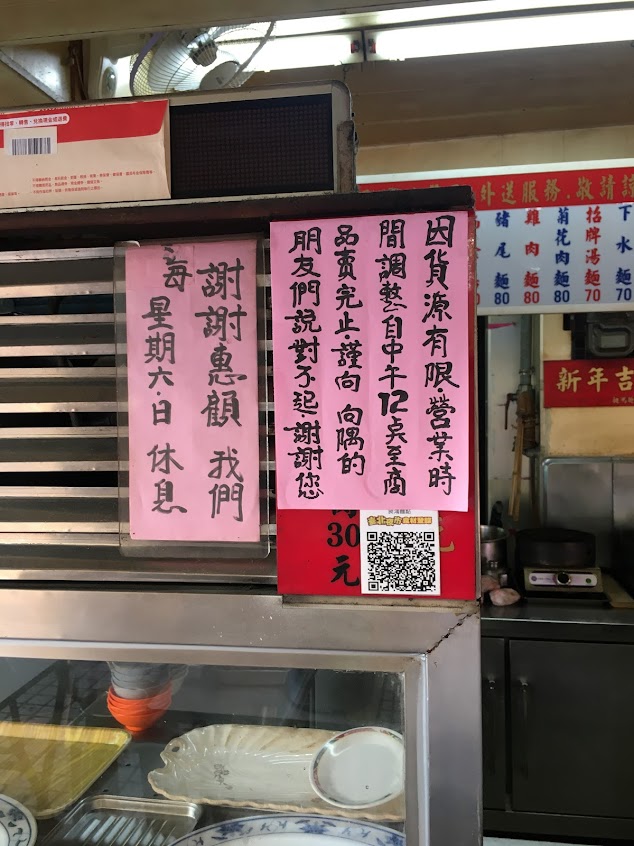 因貨源有限營業時
間調整自中午12点至商
品賣完止.謹向 向隅的
朋友們說對不起.謝謝您
謝謝惠顧 我們
每 星期六.日 休息
外送服務.敬請
下水麵 70
招牌湯麵 70
菊花肉麵 80
雞肉麵 80
豬尾麵 80
新年吉
30元